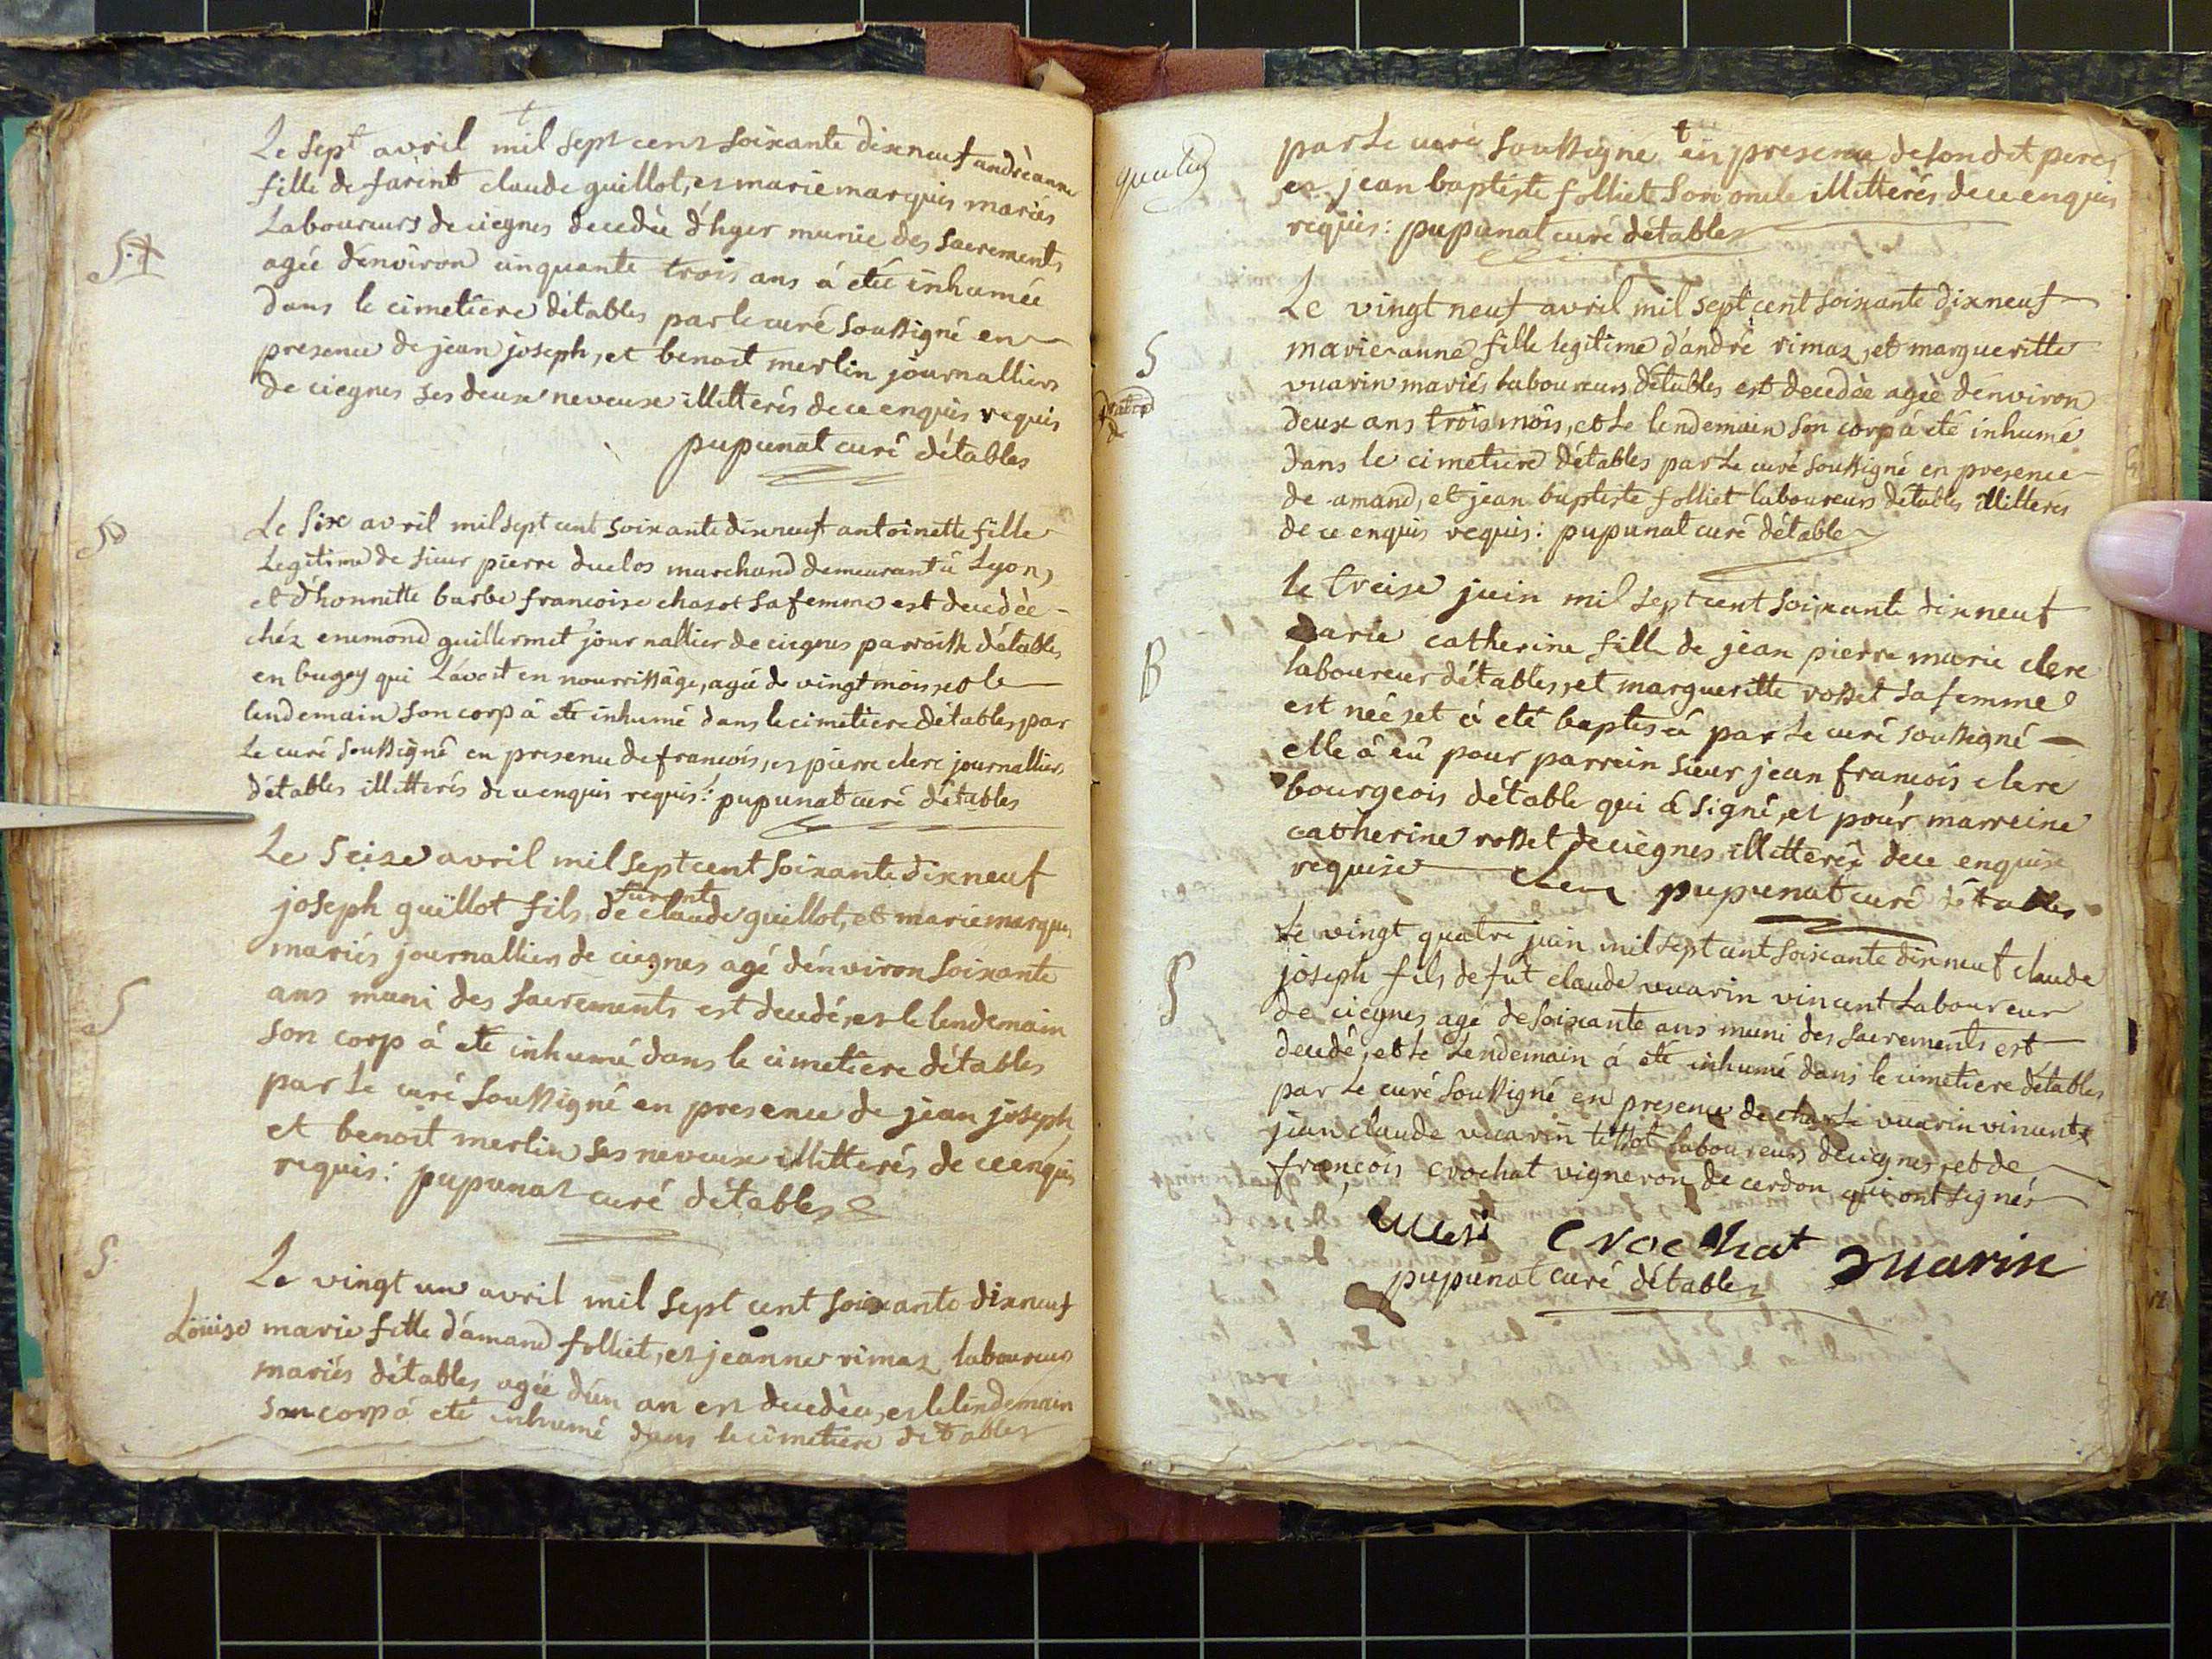 Le sept avril mil sept cent soixante dixneuf andréanne
fille de furent claude guillot, et marie marquis mariés
Laboureurs de ciegnes decedée d'hyer munie des sacrements
agée d'environ cinquante trois ans á etée inhumée
dans le cimetiere d'étables par le curé soussigné en
presence de jean joseph, et benoit merlin journalliers
de ciegnes ses deux neveux illitterés de ce enquis requis
pupunat curé d'étables
Le six avril mil sept cent soixante dixneuf antoinette fille
Legitime de sieur pierre duclos marchand demeurant á Lyon,
et d'honnette barbe francoise chasot sa femme est decedée
chéz enemond guillermet journallier de ciegnes parroisse d'étables
en bugey qui L'avoit en nourrissage, agée de vingt mois, et le
lendemain son corp á eté inhumé dans le cimetiere d'étables par
Le curé soussigné en presence de francois, et pierre clerc journalliers
d'étables illitterés de ce enquis requis: pupunat curé d'étables
S
Le seize avril mil sept cent soixante dixneuf
joseph guillot fils de furent claude guillot, et marie marquis
mariés journalliers de ciegnes agé d'énviron soixante
ans muni des sacrements est decedé, et le lendemain
son corp á eté inhumé dans le cimetiere d'étables
par Le curé soussigné en presence de jean joseph,
et benoit merlin ses neveux illitterés de ce enquis
requis: pupunat curé d'étables
S.
Le vingt un avril mil sept cent soixante dixneuf
Loüise marie fille d'amand folliet, et jeanne rimaz laboureurs
mariés d'étables agée d'un an est decedée, et le lendemain
son corp á eté inhumé dans le cimetiere d'étables
par Le curé soussigné en presence de son dit pere,
et jean baptiste folliet son oncle illitterés de ce enquis
requis: pupunat curé d'étables
S
Le vingt neuf avril mil sept cent soixante dixneuf
marie anne fille legitime d'andré rimaz, et margueritte
vuarin mariés laboureurs d'étables est decedée agée d'environ
deux ans trois mois, et Le lendemain son corp á eté inhumé
dans le cimetiere d'étables par Le curé soussigné en presence
de amand, et jean baptiste folliet laboureurs d'étables illitterés
de ce enquis requis: pupunat curé d'étable
B
le treise juin mil sept cent soixante dixneuf
marie catherine fille de jean pierre marie clerc
laboureur d'étables, et margueritte rosset sa femme
est née, et á eté baptisée par Le curé soussigné
elle á eû pour parrein sieur jean francois clerc
bourgeois d'étable qui á signé, et pour marreine
catherine rosset de ciegnes illitterée de ce enquise
requise clerc pupunat curé d'étables
S
Le vingt quatre juin mil sept cent soixante dixneuf claude
joseph fils de fut claude vuarin vincent Laboureur
de ciegnes agé de soixante ans muni des sacrements est
decedé, et Le Lendemain á eté inhumé dans le cimetiere d'étables
par Le curé soussigné en presence de charle vuarin vincent
jean claude vuarin tissot laboureurs de ciegnes, et de
francois crochat vigneron de cerdon qui ont signés
Crochat vuarin
pupunat curé d'étables